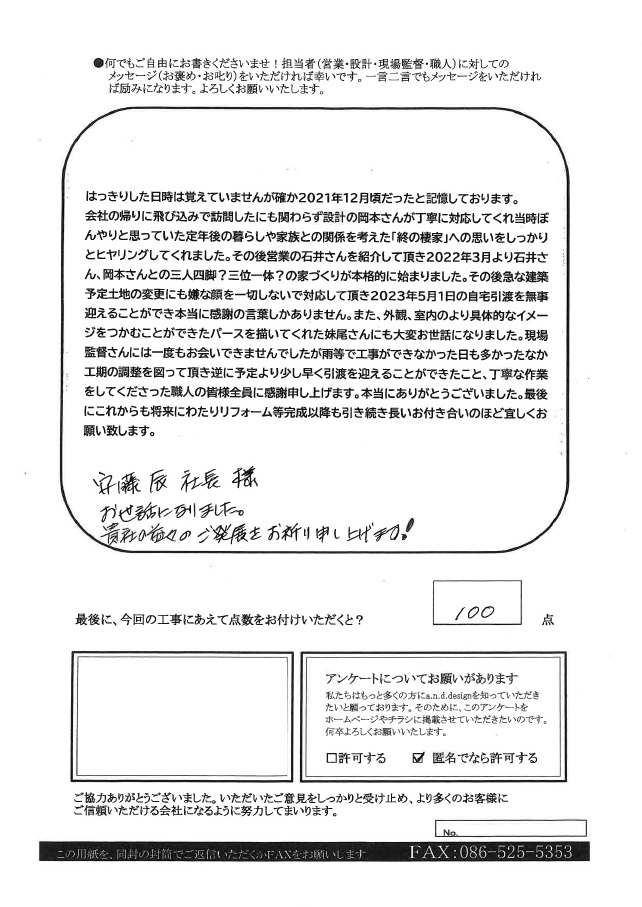 ●何でもご自由にお書きくださいませ！担当者（営業・設計・現場監督・職人）に対しての
メッセージ（お褒め・お叱り）をいただければ幸いです。一言二言でもメッセージをいただけれ
ば励みになります。よろしくお願いいたします。
はっきりした日時は覚えていませんが確か2021年12月頃だったと記憶しております。
会社の帰りに飛び込みで訪問したにも関わらず設計の岡本さんが丁寧に対応してくれ当時ぼ
んやりと思っていた定年後の暮らしや家族との関係を考えた「終の棲家」への思いをしっかり
とヒヤリングしてくれました。その後営業の石井さんを紹介して頂き2022年3月より石井さ
ん、岡本さんとの三人四脚？三位一体？の家づくりが本格的に始まりました。その後急な建築
予定土地の変更にも嫌な顔を一切しないで対応して頂き2023年5月1日の自宅引渡を無事
迎えることができ本当に感謝の言葉しかありません。また、外観、室内のより具体的なイメー
ジをつかむことができたパースを描いてくれた妹尾さんにも大変お世話になりました。現場
監督さんには一度もお会いできませんでしたが雨等で工事ができなかった日も多かったなか
工期の調整を図って頂き逆に予定より少し早く引渡を迎えることができたこと、丁寧な作業
をしてくださった職人の皆様全員に感謝申し上げます。本当にありがとうございました。最後
にこれからも将来にわたりリフォーム等完成以降も引き続き長いお付き合いのほど宜しくお
願い致します。
安藤 辰 社長 様
お世話になりました。
貴社の益々のご発展をお祈り申し上げます！
最後に、今回の工事にあえて点数をお付けいただくと？
100
点
アンケートについてお願いがあります
私たちはもっと多くの方にa.n.d.designを知っていただき
たいと願っております。そのために、このアンケートを
ホームページやチラシに掲載させていただきたいのです。
何卒よろしくお願いいたします。
□許可する ☑匿名でなら許可する
ご協力ありがとうございました。いただいたご意見をしっかりと受け止め、より多くのお客様に
ご信頼いただける会社になるように努力してまいります。
No.
この用紙を、同封の封筒でご返信いただくかFAXをお願いします
FAX:086-525-5353